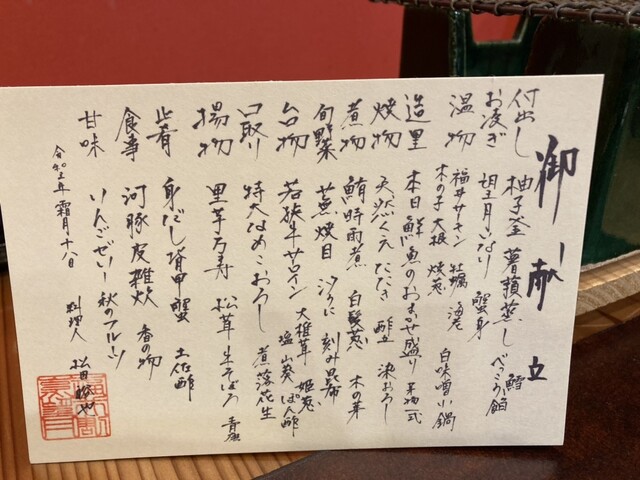 御献立
付出し 柚子釜 薯蕷蒸し 鱈 べっこう餡
お凌ぎ 胡麻いなり 蟹身
温物 福井サーモン 牡蠣 海老 白味噌小鍋
木の子 大根 焼葱
造里 本日鮮魚のおまかせ盛り 予物一式
焼物 天然くえたたき 酢立 染おろし
煮物 鮪時雨煮 白髪葱 木の芽
旬野菜 蕪焼目 汐うに 刻み昆布
台物 若狭牛サロイン 大椎茸 姫葱
塩 山葵 ぽん酢
口取り 特大なめこおろし 煮落花生
揚物 里芋万寿 松茸 生そばろ 青唐
止肴 身だし 背甲蟹 土佐酢
食事 河豚皮雑炊 香の物
甘味 りんごゼリー 秋のフルーツ
霜月十八日
料理人 松田